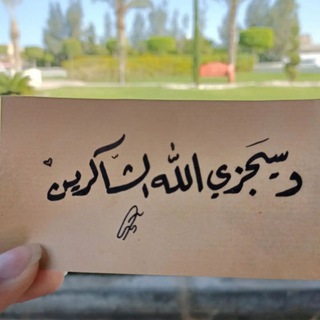 وسيجزي الله الشاكرين